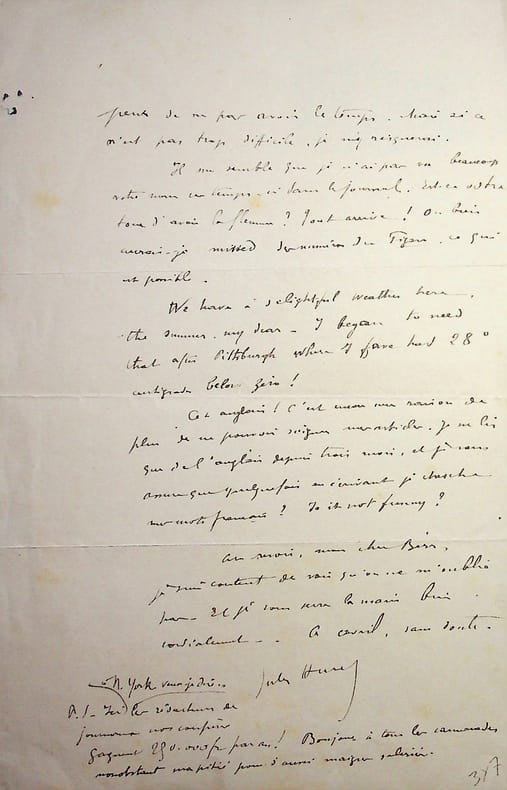 peur de ne pas avoir le temps. Mais si ce
n'est pas trop difficile, je m'y résignerai.
Il me semble que je n'ai pas vu beaucoup
votre nom ces temps-ci dans le journal. Est-ce votre
tour d'avoir la flemme? Tout arrive! Ou bien
aurais-je missed des numéros du Figaro, ce qui
est possible.
We have a delightful weather here,
the summer, my dear - I began to need
that after Pittsburgh where I have had 28°
centigrade below zero!
Cet anglais! C'est encore une raison de
plus de ne pouvoir soigner mes articles. Je ne lis
que de l'anglais depuis trois mois, et je vous
assure que quelquefois en écrivant je cherche
mes mots français? Is it not funny?
Au revoir, mon cher Berr,
je suis content de voir qu'on ne m'oublie
pas. Et je vous serre la main bien
cordialement. - A avril, sans doute.
Jules Huret
N. York vendredi.
P.S. Ici les rédacteurs de
journaux nos confrères
gagnent 250.000 fr par an! Bonjour à tous les camarades
nonobstant ma pitié pour d'aussi maigres salaires.